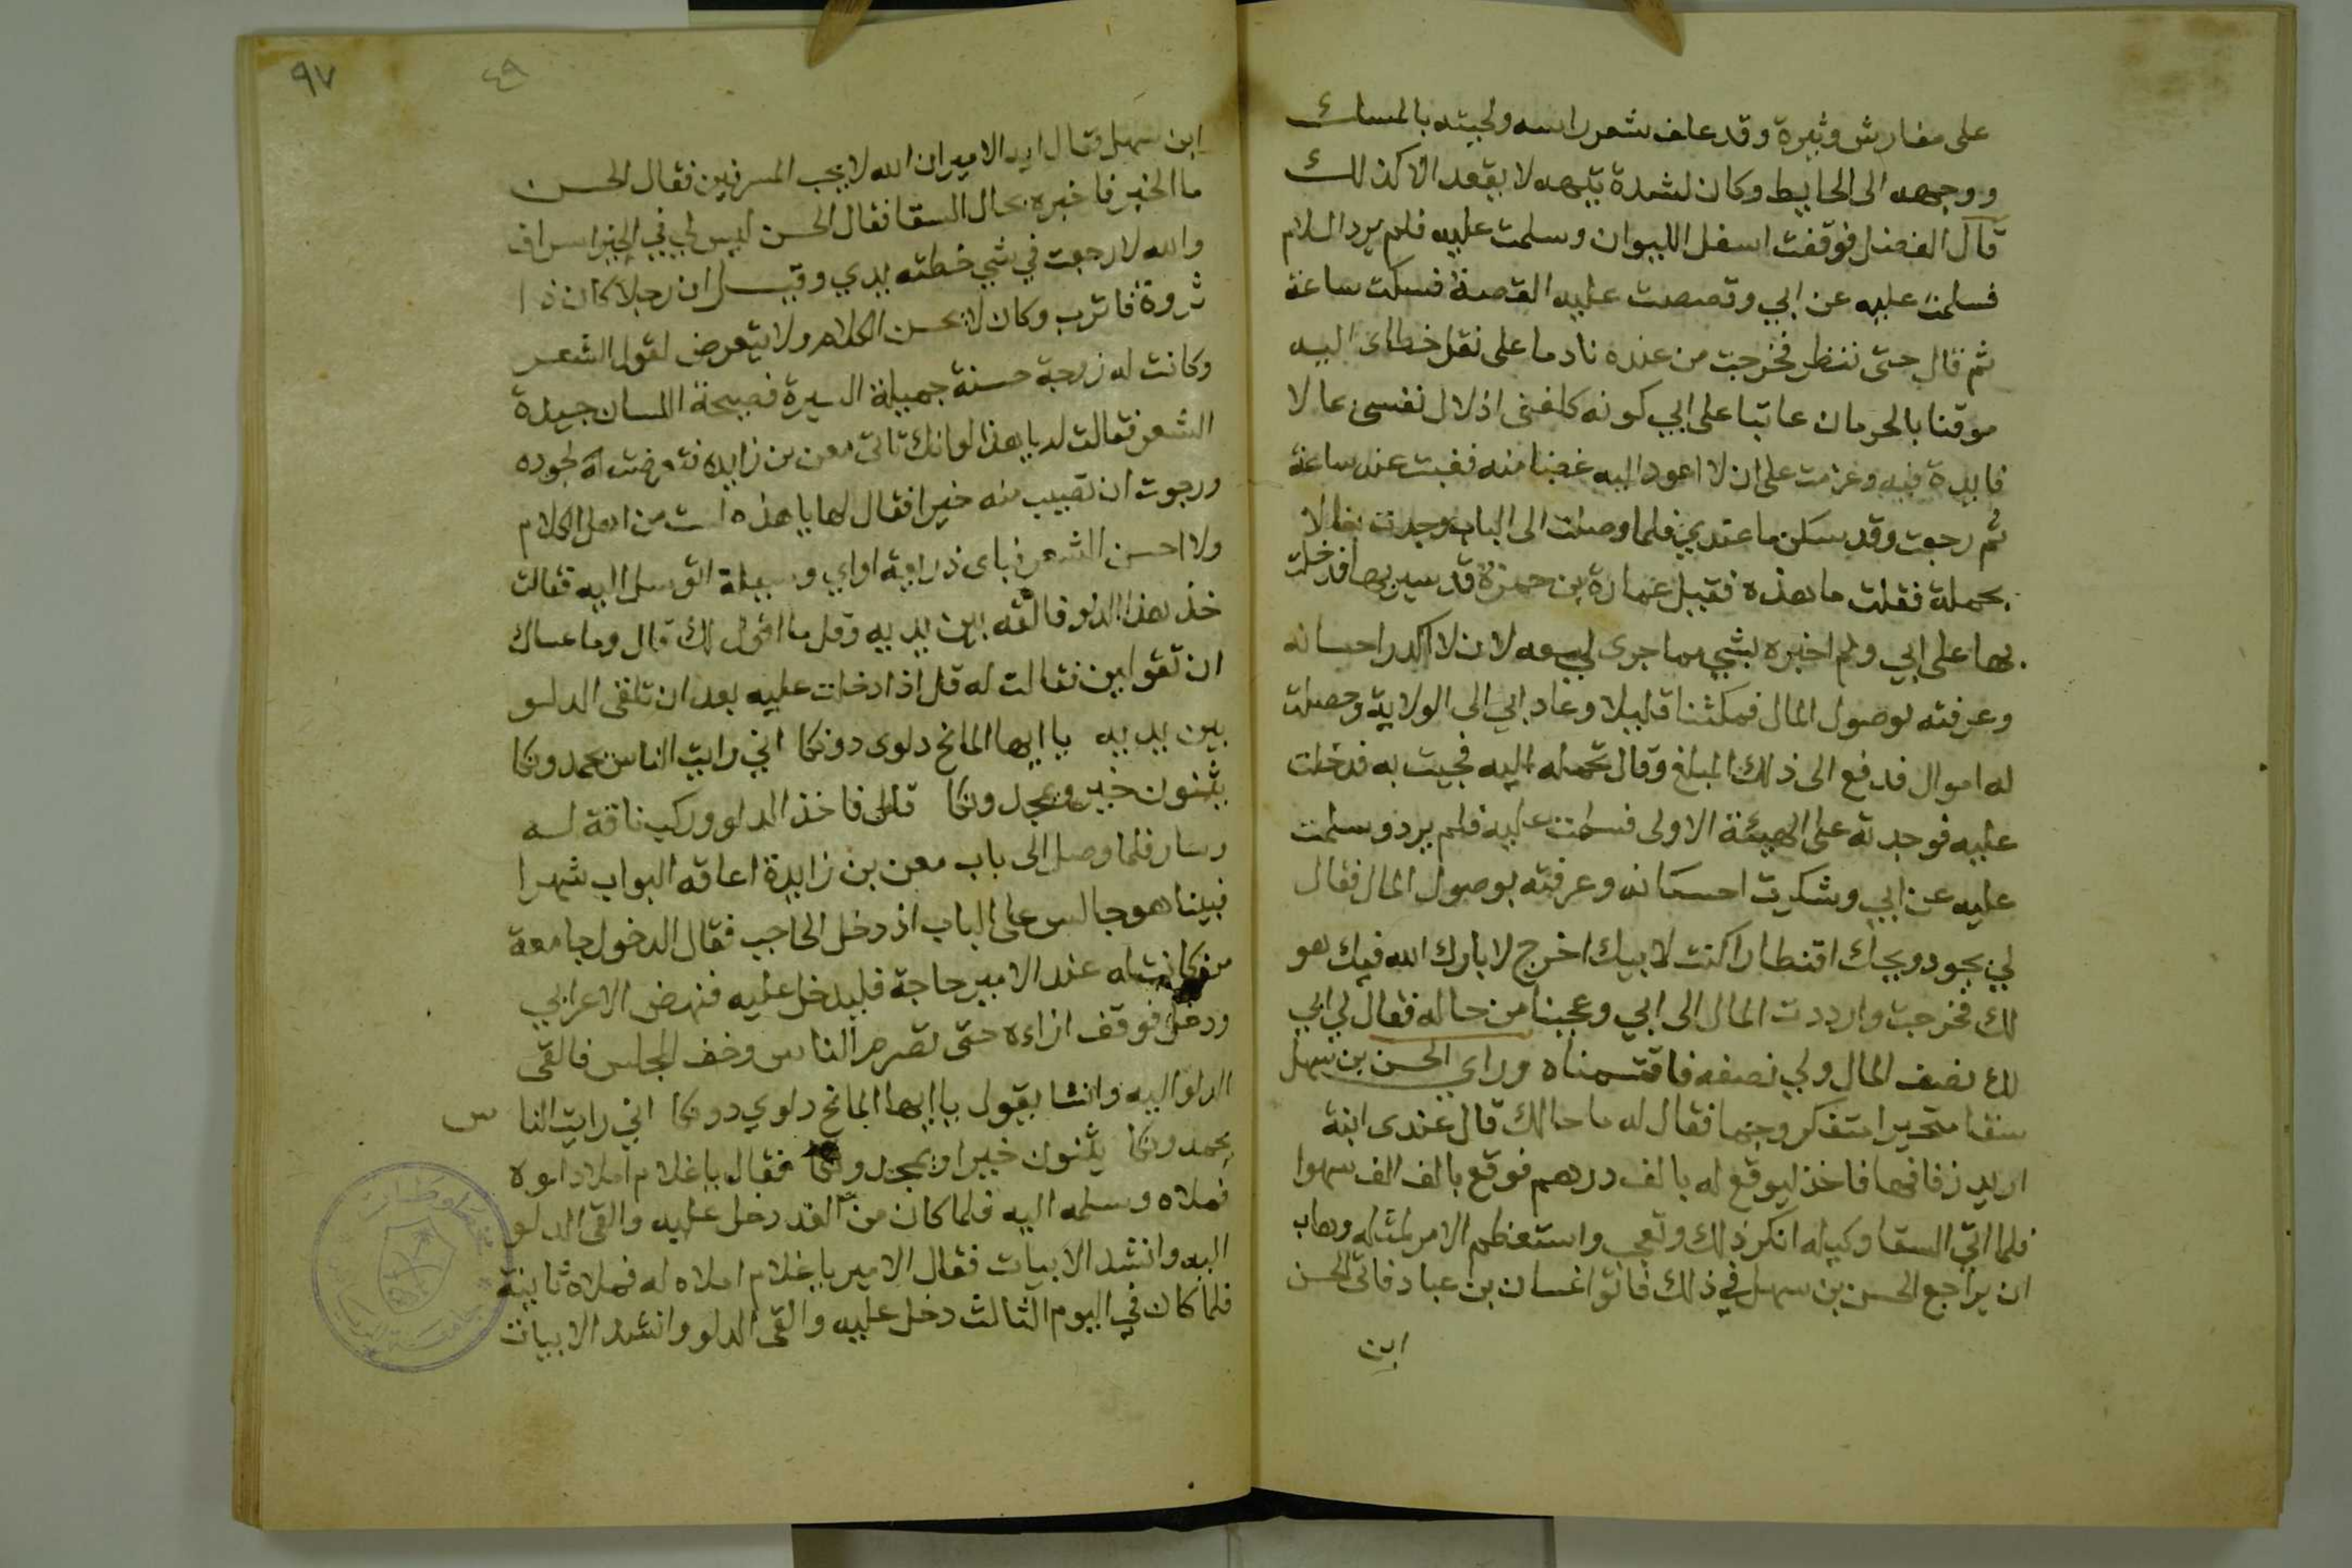 على مفارش وثيرة وقد غلف شعر راسه ولحيته بالمسك
ووجهه الى الحايط وكان لشدة تيهه لا يقعد الا كذلك
قال الفضل فوقفت اسفل الليوان وسلمت عليه فلم يرد السلام
فسلمت عليه عن ابي وقصصت عليه القصة فسكت ساعة
ثم قال حتى ننظر فخرجت من عنده نادما على نقل خطاى اليه
موقنا بالحرمان عاتبا على ابي كونه كلفنى اذلال نفسى عا لا
فايدة فيه وعزمت على ان لا اعود اليه غضبا منه فغبت عنه ساعة
ثم رجعت وقد سكن ما عندي فلما وصلت الى الباب وجدت بغالا
محملة فقلت ما هذه فقيل عمارة بن حمزة قد سير بها فدخلت
بها على ابي ولم اخبره بشي مما جرى لي معه لان لا اكدر احسانه
وعرفته بوصول المال فمكثنا قليلا وعاد ابي الى الولاية وحصلت
له اموال فدفع الى ذلك المبلغ وقال تحمله اليه فجيت به فدخلت
عليه فوجدته على الهيئة الاولى فسلمت عليه فلم يرد وسلمت
عليه عن ابي وشكرت احسانه وعرفته بوصول المال فقال
لي بجود ويحك اقنطارا كنت لابيك اخرج لا بارك الله فيك هو
لك فخرجت وارددت المال الى ابي وعجبنا من حاله فقال لي ابي
لك نصف المال ولي نصفه فاقتسمناه وراي الحسن بن سهل
سقا متحيرا متفكر وجها فقال له ما حالك قال عندى ابنة
اريد زفافها فاخذ ليوقع له بالف درهم فوقع بالف الف سهوا
فلما اتي السقا وكيله انكر ذلك وتعجب واستعظم الامر لمثله وهاب
ان يراجع الحسن بن سهل في ذلك فاتوا غسان بن عباد فاتى الحسن
ابن
٩٧
٤٩
ابن سهل وقال ايه الامير ان الله لا يحب المسرفين فقال الحسن
ما الخبر فاخبره بحال السقا فقال الحسن ليس لي في الخير اسراف
والله لا رجعت في شي خطته يدي وقيل ان رجلا كان ذا
ثروة فاترب وكان لا يحسن الكلام ولا يتعرض لقول الشعر
وكانت له زوجة حسنة جميلة السيرة فصيحة اللسان جيدة
الشعر فقالت له يا هذا لو انك تاتى معن بن زايدة فتعرضت له لجوده
ورجوت ان تصيب منه خيرا فقال لها يا هذه لست من اهل الكلام
ولا احسن الشعر فباى ذريعة او اي وسيلة اتوسل اليه فقالت
خذ هذا الدلو فالقه بين يديه وقل ما اقول لك قال وما عساك
ان تقولين فقالت له قل اذا دخلت عليه بعد ان تلقى الدلو
بين يديه يا ايها المانح دلوى دونكا اني رايت الناس يحمدونكا
يثنون خير ويمجدونكا قال فاخذ الدلو وركب ناقة له
وسار فلما وصل الى باب معن بن زايدة اعاقه البواب شهرا
فبينا هو جالس على الباب اذ دخل الحاجب فقال الدخول جامعة
من كانت له عند الامير حاجة فليدخل عليه فنهض الاعرابي
ودخل فوقف ازاءه حتى تصرم الناس وخف المجلس فالقى
الدلو اليه وانشا يقول يا ايها المانح دلوي دونكا اني رايت الناس
يحمدونكا يثنون خيرا ويمجدونكا فقال يا غلام املا دلوه
فملاه وسلمه اليه فلما كان من الغد دخل عليه والقى الدلو
اليه وانشد الابيات فقال الامير يا غلام املاه له فملاه ثانية
فلما كان في اليوم الثالث دخل عليه والقى الدلو وانشد الابيات